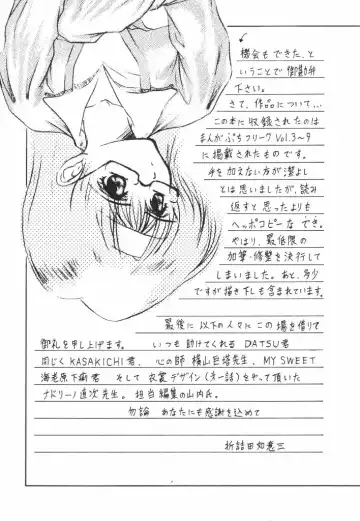 機会もできた、と
いうことで御勘弁
下さい。
さて、作品について…
この本に収録されたのは
まんがぷちフリーク Vol.3〜9
に掲載されたものです。
手を加えない方が潔よし
とは思いましたが、読み
返すと思ったよりも
ヘッポコピーな でき。
やはり、最低限の
加筆・修整を決行して
しまいました。あと、多少
ですが描き下しも含まれています。
最後に 以下の人々に この 場を借りて
御礼を申し上げます。 いつも 助けてくれる DATSU君
同じく KASAKICHI君、 心の師 横山巨塔先生、MY SWEET
海老原下衛君 そして 衣裳デザイン(第一話)をやって頂いた
ナドリーノ直次先生。担当編集の山内氏。
勿論 あなたにも感謝を込めて
折詰田知恵三